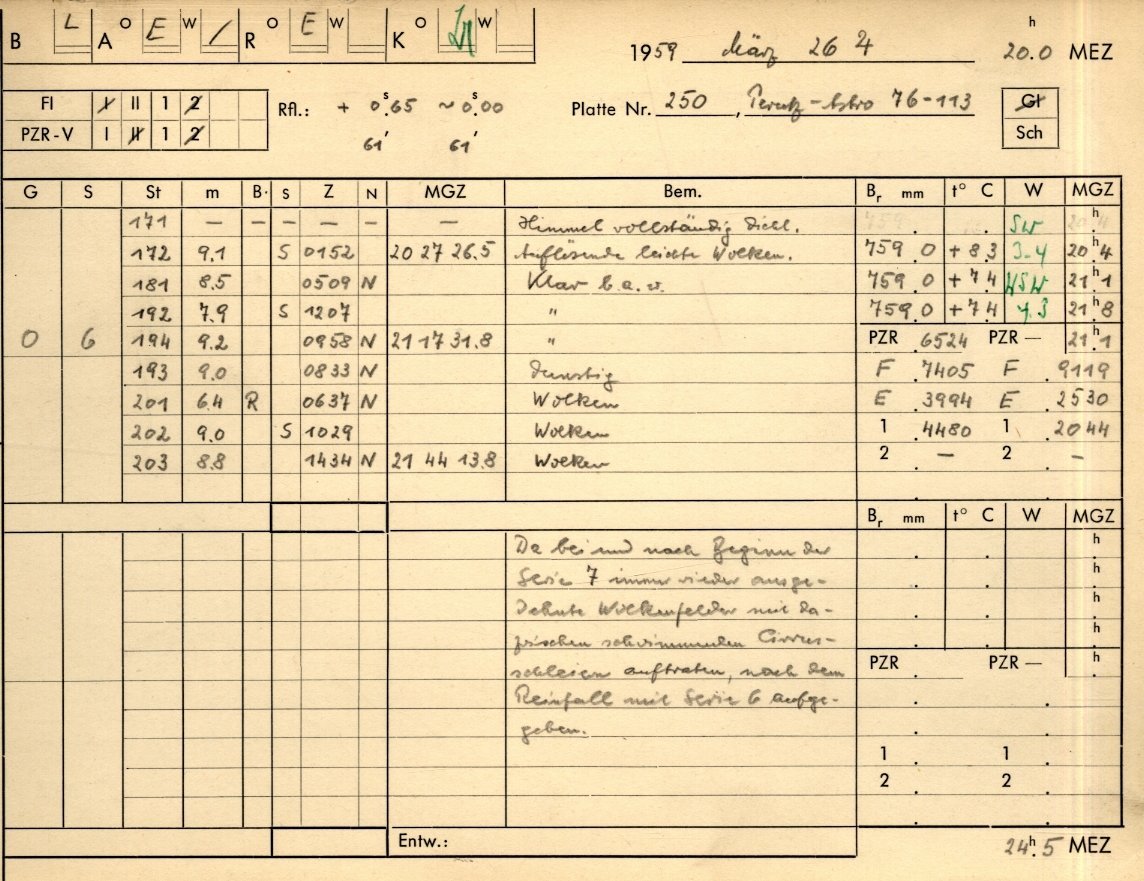 B L A O E W / R O E W K O W h
1959 März 26 4 20.0 MEZ
FI I II 1 2 Rfl.: + 0ˢ.65 ~0ˢ.00 Platte Nr. 250, Perutz-Astro 76-113 Gl
PZR-V I II 1 2 61' 61' Sch
G S St m B. S Z N MGZ Bem. Bᵣ mm t° C W MGZ
171 — — — — — — Himmel vollständig dicht. 759 SW 20ʰ.4
172 9.1 S 0152 20 27 26.5 Auflösende leichte Wolken. 759.0 +8.3 3-4 20ʰ.4
181 8.5 0509 N Klar b.a.w. 759.0 +7.4 WSW 21ʰ.1
192 7.9 S 1207 " 759.0 +7.4 4.3 21ʰ.8
0 6 194 9.2 0958 N 21 17 31.8 " PZR .6524 PZR — 21ʰ.1
193 9.0 0833 N Dunstig F .7405 F .9119
201 6.4 R 0637 N Wolken E .3994 E .2530
202 9.0 S 1029 Wolken 1 .4480 1 .2044
203 8.8 1434 N 21 44 13.8 Wolken 2 . — 2 . —
Bᵣ mm t° C W MGZ
Da bei und nach Beginn der h
Serie 7 immer wieder ausge- h
dehnte Wolkenfelder mit da- h
zwischen schwimmenden Cirrus- h
schleiern auftraten, nach dem PZR PZR — h
Reinfall mit Serie 6 aufge-
geben.
1 1
2 2
Entw.: 24ʰ.5 MEZ